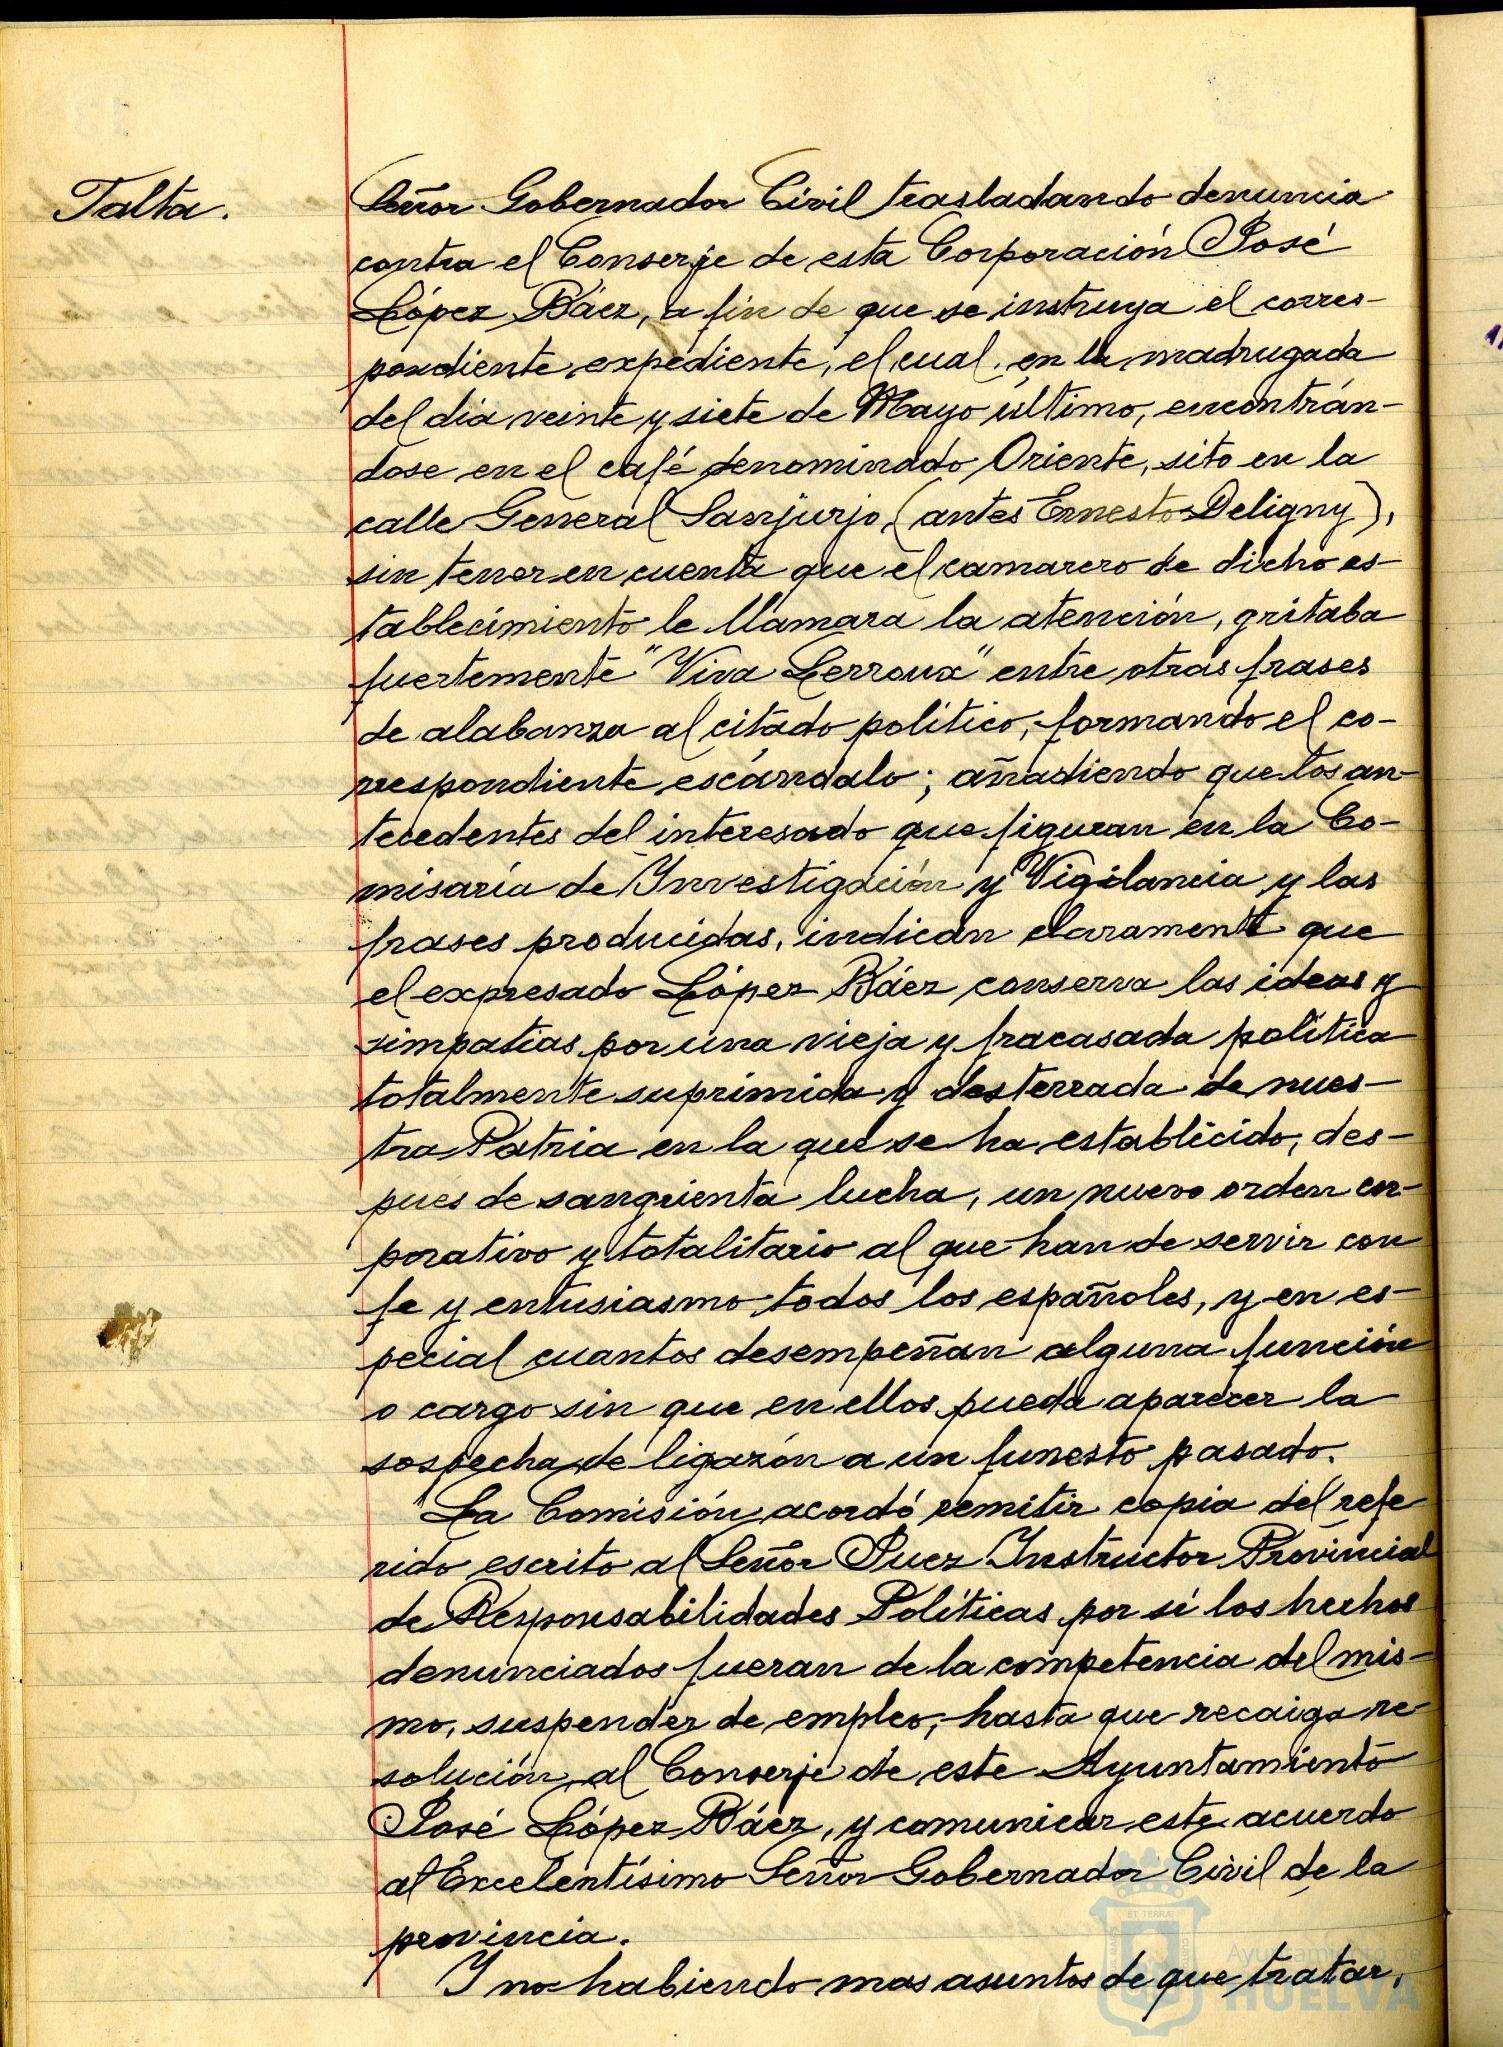 Falta.
Señor Gobernador Civil trasladando denuncia
contra el Conserje de esta Corporación José
López Báez, a fin de que se instruya el corres-
pondiente expediente, el cual, en la madrugada
del día veinte y siete de Mayo último, encontrán-
dose en el café denominado Oriente, sito en la
calle General Sanjurjo, (antes Ernesto Deligny),
sin tener en cuenta que el camarero de dicho es-
tablecimiento le llamara la atención, gritaba
fuertemente "Viva Lerroux" entre otras frases
de alabanza al citado político, formando el co-
rrespondiente escándalo; añadiendo que los an-
tecedentes del interesado que figuran en la Co-
misaría de Investigación y Vigilancia y las
frases producidas, indican claramente que
el expresado López Báez conserva las ideas y
simpatías por una vieja y fracasada política
totalmente suprimida y desterrada de nues-
tra Patria en la que se ha establecido, des-
pues de sangrienta lucha, un nuevo orden cor-
porativo y totalitario al que han de servir con
fe y entusiasmo todos los españoles, y en es-
pecial cuantos desempeñan alguna función
o cargo sin que en ellos pueda aparecer la
sospecha de ligazón a un funesto pasado.
La Comisión acordó remitir copia del refe
rido escrito al Señor Juez Instructor Provincial
de Responsabilidades Políticas por si los hechos
denunciados fueran de la competencia del mis-
mo, suspender de empleo, hasta que recaiga re
solución, al Conserje de este Ayuntamiento
José López Báez, y comunicar este acuerdo
al Excelentísimo Señor Gobernador Civil de la
provincia.
Y no habiendo mas asuntos de que tratar,
ET TERRÆ
Ayuntamiento de
HUELVA